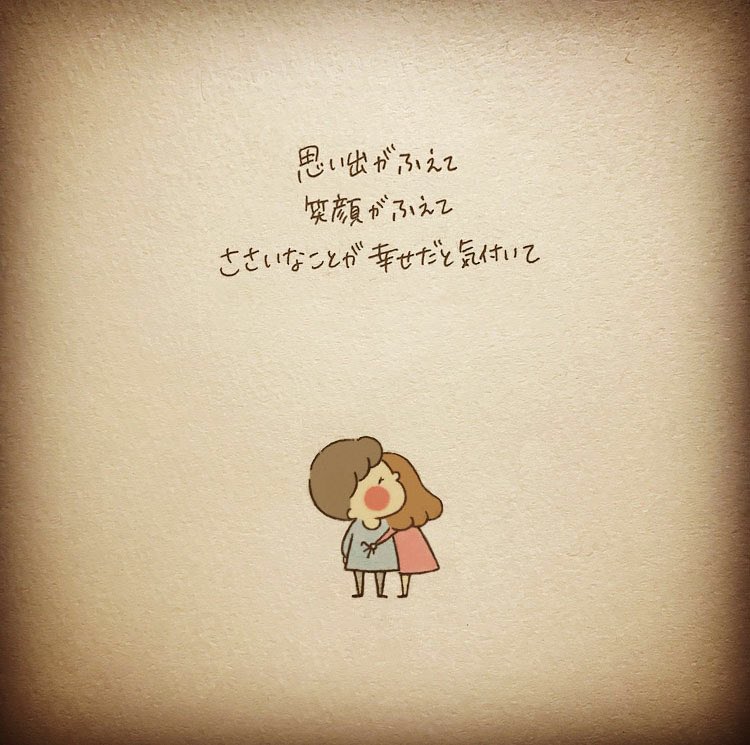 思い出がふえて
笑顔がふえて
ささいなことが 幸せだと気付いて